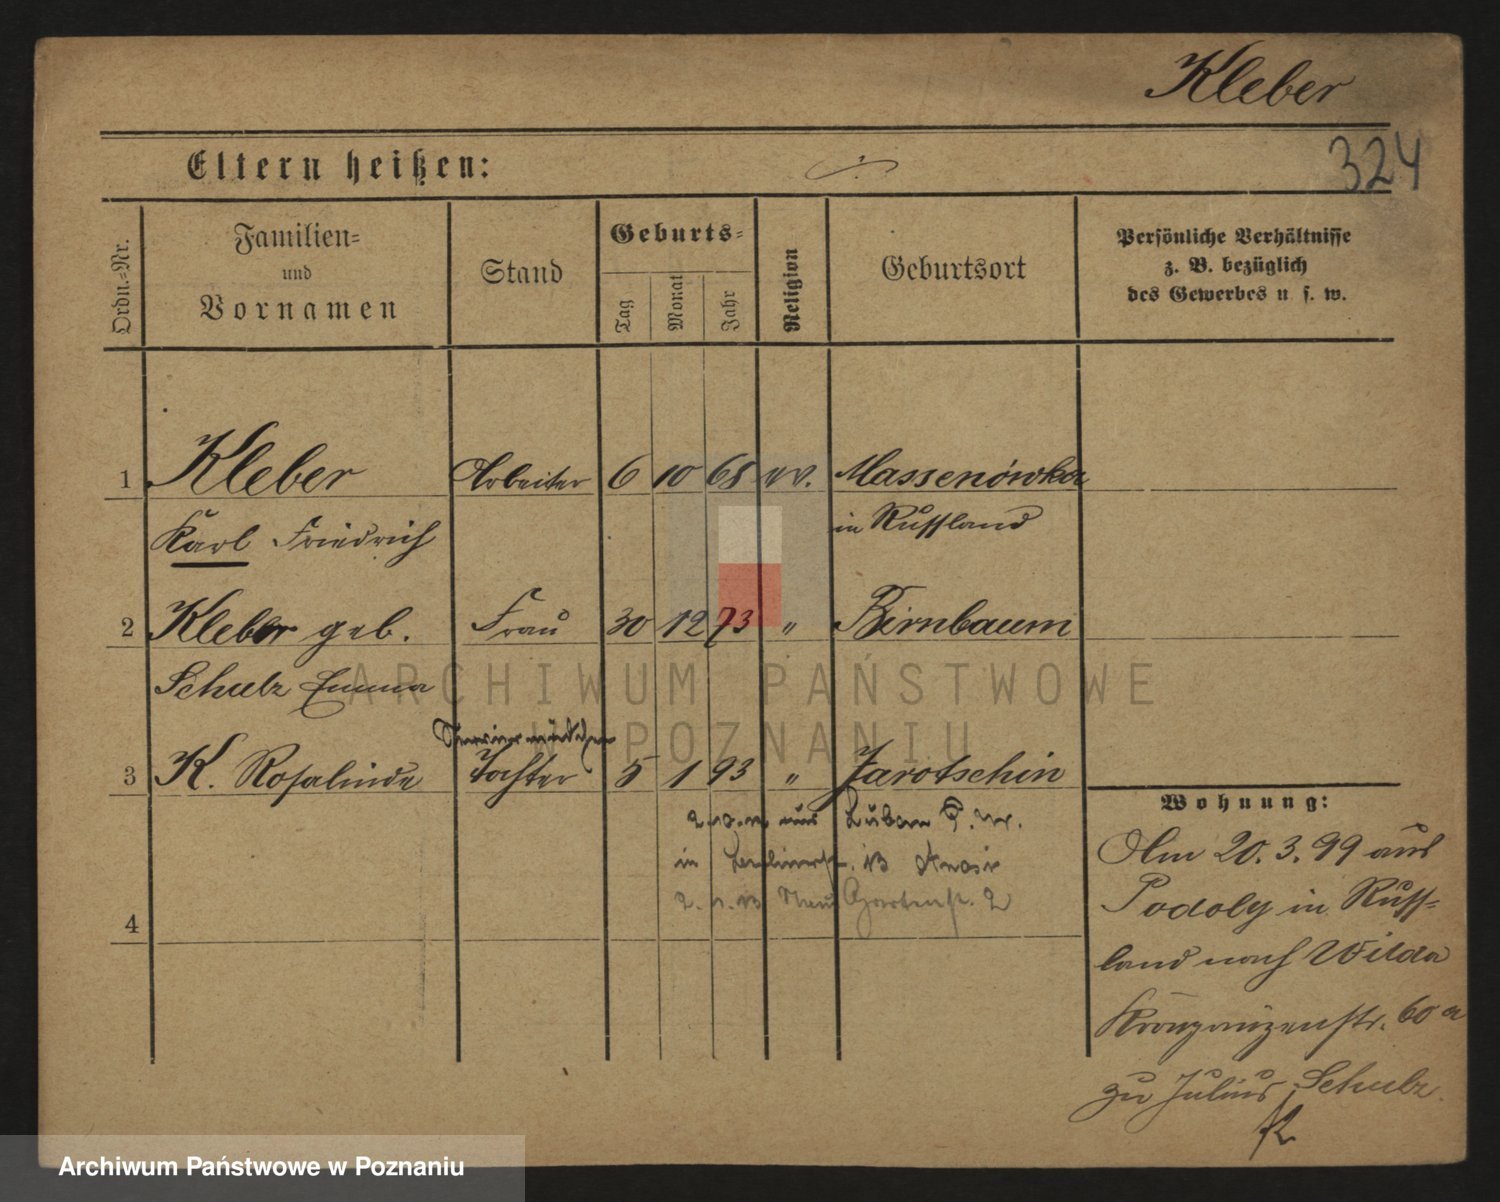 Kleber
324
Eltern heißen:
Ordn.=Nr.
Familien=
und
Vornamen
Stand
Geburts=
Tag
Monat
Jahr
Religion
Geburtsort
Persönliche Verhältnisse
z. B. bezüglich
des Gewerbes u. s. w.
1 Kleber Arbeiter 6 10 68 ev. Massenówka
Karl Friedrich in Russland
2 Kleber geb. Frau 30 12 73 " Birnbaum
Schulz Emma
3 K. Rosalinde Tochter 5 1 93 " Jarotschin
aus Luban P. W.
in
Gartenstr. 2
4
Wohnung:
Am 20. 3. 99 aus
Podoly in Russ=
land nach Wilda
Kronprinzenstr. 60 a
zu Julius Schulz.
ARCHIWUM PAŃSTWOWE
W POZNANIU
Archiwum Państwowe w Poznaniu